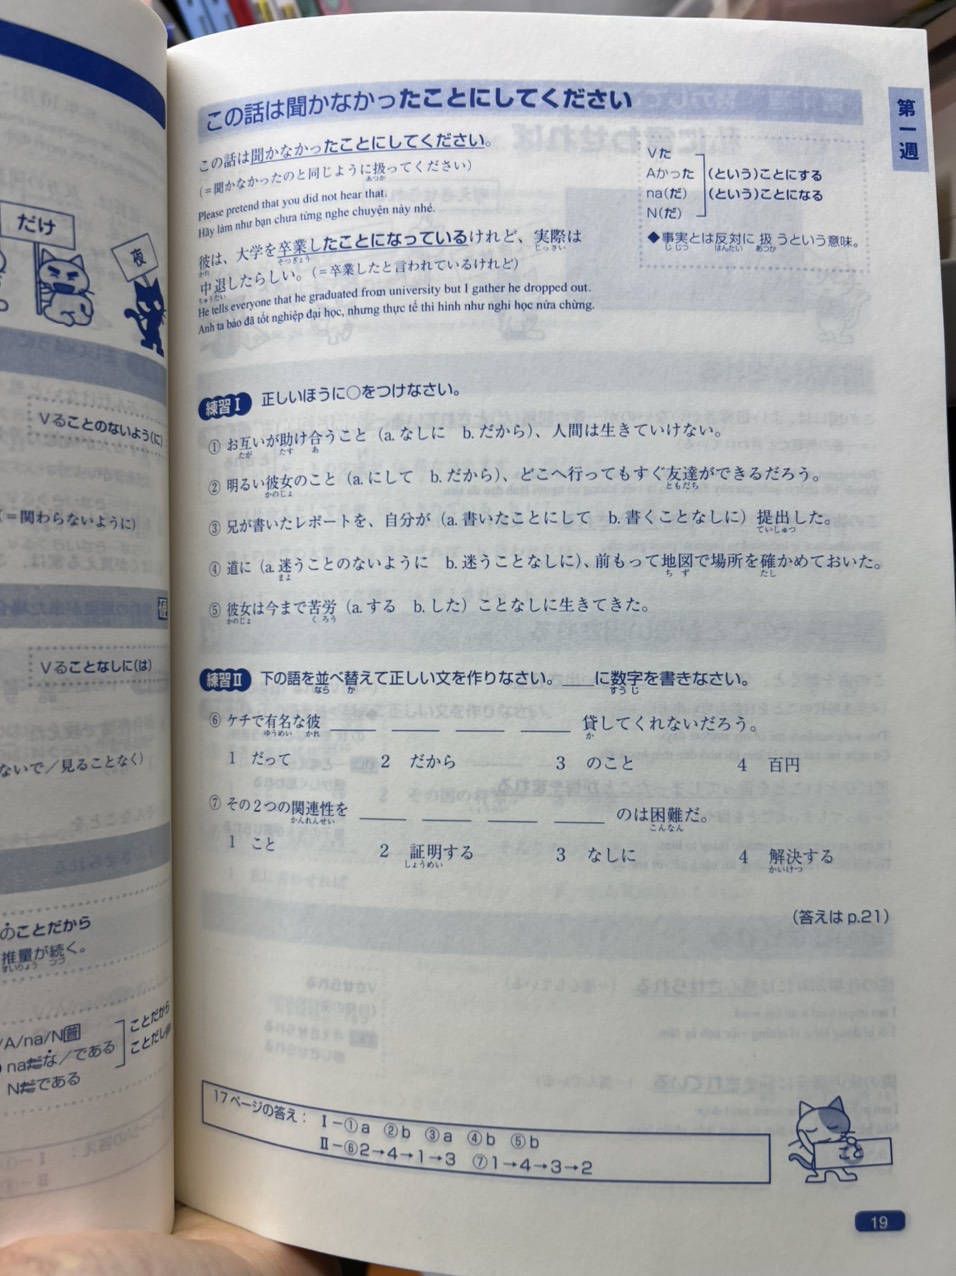 だけ
夜
Vることのないよう(に)
(=関わらないように)
Vることなしに(は)
ないで/見ることなく)
のことだから
推量が続く。
すいりょう つづ
/A/na/N普
naだな/である
Nだである
ことだから
ことだし
第一週
この話は聞かなかったことにしてください
この話は聞かなかったことにしてください。
(=聞かなかったのと同じように扱ってください)
あつか
Please pretend that you did not hear that.
Hãy làm như bạn chưa từng nghe chuyện này nhé.
彼は、大学を卒業したことになっているけれど、実際は
かれ そつぎょう じっさい
中退したらしい。(=卒業したと言われているけれど)
ちゅうたい
He tells everyone that he graduated from university but I gather he dropped out.
Anh ta bảo đã tốt nghiệp đại học, nhưng thực tế thì hình như nghỉ học nửa chừng.
Vた
Aかった
na(だ)
N(だ)
(という)ことにする
(という)ことになる
◆事実とは反対に扱うという意味。
じじつ はんたい あつか
練習Ⅰ 正しいほうに○をつけなさい。
① お互いが助け合うこと(a. なしに b. だから)、人間は生きていけない。
たが たす あ
② 明るい彼女のこと(a. にして b. だから)、どこへ行ってもすぐ友達ができるだろう。
かのじょ ともだち
③ 兄が書いたレポートを、自分が(a. 書いたことにして b. 書くことなしに)提出した。
ていしゅつ
④ 道に(a. 迷うことのないように b. 迷うことなしに)、前もって地図で場所を確かめておいた。
まよ ちず たし
⑤ 彼女は今まで苦労(a. する b. した)ことなしに生きてきた。
かのじょ くろう
練習Ⅱ 下の語を並べ替えて正しい文を作りなさい。___に数字を書きなさい。
なら か すうじ
⑥ ケチで有名な彼 ___ ___ ___ ___ 貸してくれないだろう。
ゆうめい かれ か
1 だって 2 だから 3 のこと 4 百円
⑦ その2つの関連性を ___ ___ ___ ___ のは困難だ。
かんれんせい こんなん
1 こと 2 証明する 3 なしに 4 解決する
しょうめい かいけつ
(答えは p.21)
17ページの答え: Ⅰ-①a ②b ③a ④b ⑤b
Ⅱ-⑥2→4→1→3 ⑦1→4→3→2
こと
19